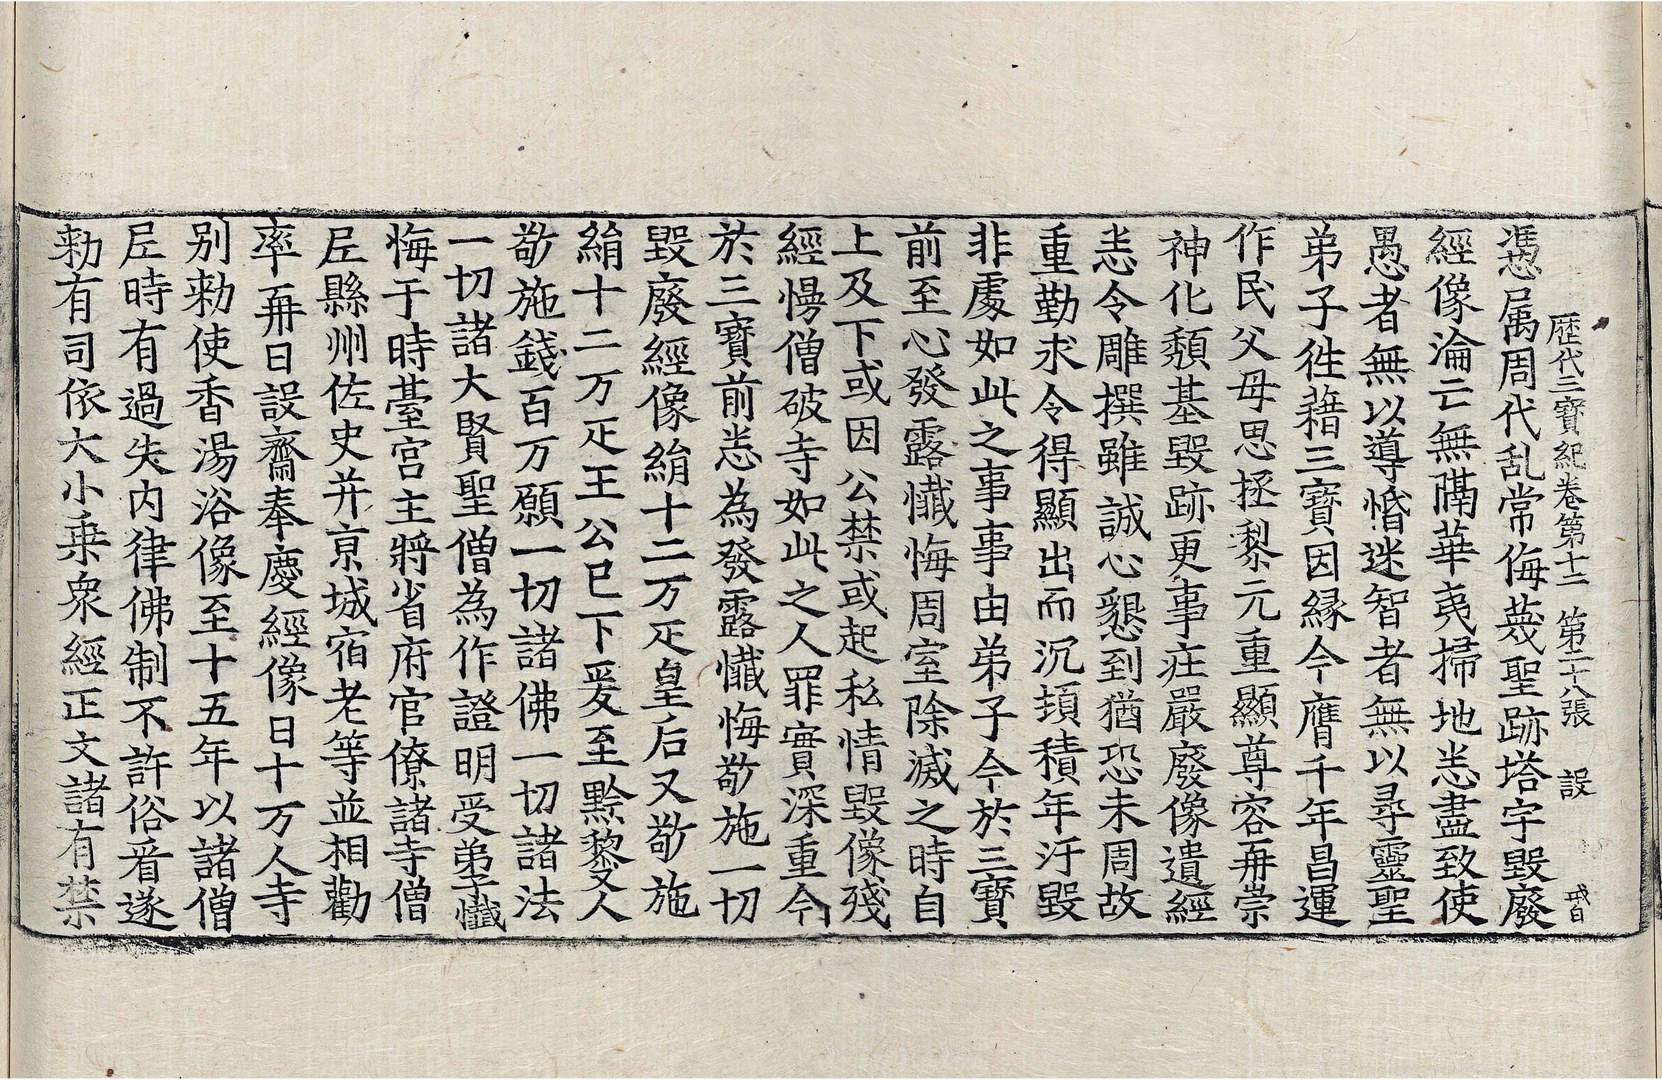 歷代三寶紀卷第十二　第二十八張　設　戒自
憑属周代乱常侮蔑聖跡塔宇毀廢
經像淪亡無隔華夷掃地悉盡致使
愚者無以導惛迷智者無以尋靈聖
弟子徃藉三寶因縁今膺千年昌運
作民父母思拯黎元重顯尊容再崇
神化頽基毀跡更事庄嚴廢像遺經
悉令雕撰雖誠心懇到猶恐未周故
重勤求令得顯出而沉頊積年汙毀
非處如此之事事由弟子今於三寶
前至心發露懺悔周室除滅之時自
上及下或因公禁或起私情毀像殘
經慢僧破寺如此之人罪實深重今
於三寶前悉為發露懺悔敬施一切
毀廢經像絹十二万疋皇后又敬施
絹十二万疋王公已下爰至黔黎又人
敬施錢百万願一切諸佛一切諸法
一切諸大賢聖僧為作證明受弟子懺
悔于時臺宮主將省府官僚諸寺僧
尼縣州佐史并京城宿老等並相勸
率再日設齋奉慶經像日十万人寺
別勑使香湯浴像至十五年以諸僧
尼時有過失内律佛制不許俗看遂
勑有司依大小乗衆經正文諸有禁